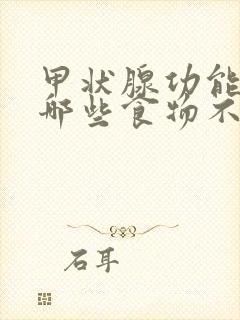 甲状腺功能
哪些食物不
石耳